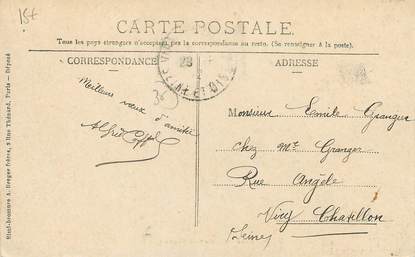 15+
CARTE POSTALE
Tous les pays étrangers n'acceptent pas la correspondance au recto. (Se renseigner à la poste).
CORRESPONDANCE
ADRESSE
Meilleurs vœux d'amitié
Alfred
Monsieur Emile Granger
chez Mr Granger
Rue Angèle
Viry Chatillon
(Seine)
Simi-bromure A. Breger frères, 9 Rue Thénard, Paris — Déposé